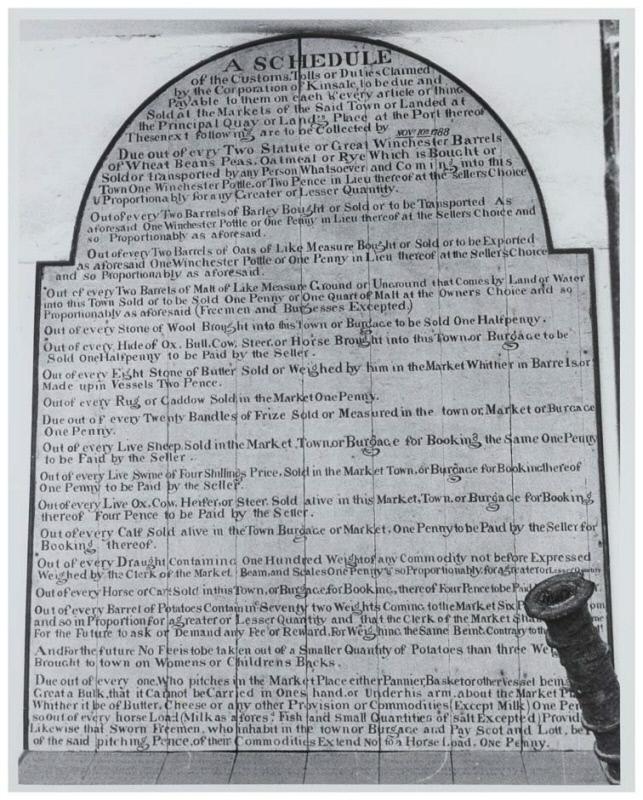 A SCHEDULE
of the Customs, Tolls or Duties Claimed
by the Corporation of Kinsale to be due and
Payable to them on each & every article or thing
Sold at the Markets of the Said Town or Landed at
the Principal Quay or Landg Place at the Port thereof
Thesenext following are to be Collected by NOV 10th 1788
Due out of evry Two Statute or Great Winchester Barrels
of Wheat Beans Peas. Oatmeal or Rye Which is Bought or
Sold or transported by any Person Whatsoever and Coming into this
Town One Winchester Pottle. or Two Pence in Lieu thereof at the Sellers Choice
& Proportionably for any Greater or Lesser Quantity.
Out of every Two Barrels of Barley Bought or Sold or to be Transported As
aforesaid One Winchester Pottle or One Penny in Lieu thereof at the Sellers Choice and
so Proportionably as aforesaid.
Out of every Two Barrels of Oats of Like Measure Bought or Sold or to be Exported
as aforesaid One Winchester Pottle or One Penny in Lieu thereof at the Sellers Choice
and so Proportionably as aforesaid.
Out of every Two Barrels of Malt of Like Measure Ground or Unground that Comes by Land or Water
into this Town Sold or to be Sold One Penny or One Quart of Malt at the Owners Choice and so
Proportionably as aforesaid (Freemen and Burgesses Excepted.)
Out of every Stone of Wool Brought into this Town or Burgage to be Sold One Halfpenny.
Out of every Hide of Ox. Bull. Cow. Steer. or Horse Brought into this Town or Burgage to be
Sold One Halfpenny to be Paid by the Seller.
Out of every Eight Stone of Butter Sold or Weighed by him in the Market Whither in Barrels. or
Made up in Vessels Two Pence.
Out of every Rug or Caddow Sold in the Market One Penny.
Due out of every Twenty Bandles of Frize Sold or Measured in the town or Market or Burgage
One Penny.
Out of every Live Sheep Sold in the Market, Town, or Burgage for Booking the Same One Penny
to be Paid by the Seller.
Out of every Live Swine of Four Shillings Price, Sold in the Market Town, or Burgage for Booking thereof
One Penny to be Paid by the Seller.
Out of every Live Ox, Cow, Heifer, or Steer, Sold alive in this Market, Town, or Burgage for Booking
thereof Four Pence to be Paid by the Seller.
Out of every Calf Sold alive in the Town Burgage or Market, One Penny to be Paid by the Seller for
Booking thereof.
Out of every Draught Containing One Hundred Weight of any Commodity not before Expressed
Weighed by the Clerk of the Market Beam, and Scales One Penny & so Proportionably, for a greater or Lesser Quantity
Out of every Horse or Carr Sold in this Town, or Burgage, for Booking, thereof Four Pence to be Paid
Out of every Barrel of Potatoes Containing Seventy two Weights Coming to the Market Six
and so in Proportion for a greater or Lesser Quantity and that the Clerk of the Market
For the Future to ask or Demand any Fee or Reward, For Weighing the Same Being Contrary to
And for the future No Fee is to be taken out of a Smaller Quantity of Potatoes than three
Brought to town on Womens or Childrens Backs.
Due out of every one, Who pitches in the Market Place either Pannier Basket or other Vessel
Great a Bulk, that it Cannot be Carried in Ones hand, or Under his arm, about the Market
Whither it be of Butter, Cheese or any other Provision or Commodities (Except Milk) One
so out of every horse Load (Milk as afores: Fish and Small Quantities of salt Excepted)
Likewise that Sworn Freemen, who inhabit in the town or Burgage and Pay Scot and Lott,
of the said pitching Pence, of their Commodities Extend Not to a Horse Load, One Penny.